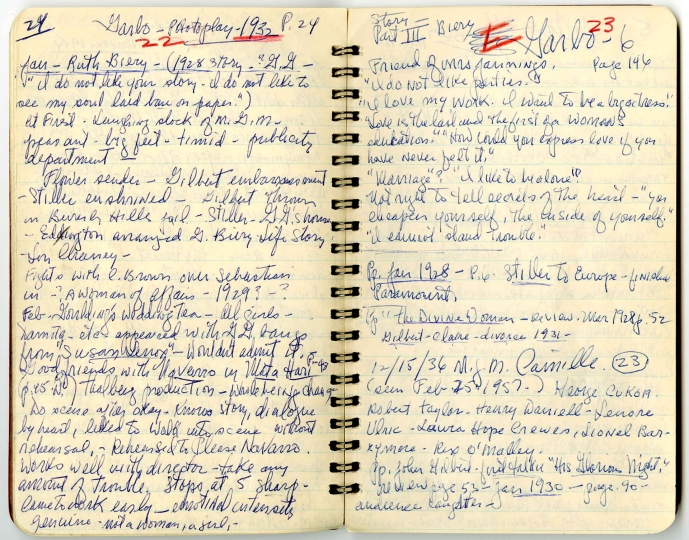 24 Garbo - Photoplay - 1932 P. 24
22
Jan - Ruth Biery - (1928 story - "G.G -
"I do not like your story - I do not like to
see my soul laid bare on paper.")
At First - laughing stock of M.G.M -
peasant - big feet - timid - publicity
department
Flower sender - Gilbert embarrassment
- Stiller enshrined - Gilbert thrown
in Beverly Hills jail - Stiller - G.G.'s house
- Edington arranged G. Biery - Life Story.
- Lon Chaney -
Fights with C. Brown over Sebastian
in - ? A Woman of Affairs - 1929 - ?
Feb - Goulding's Wedding tea - all girls -
etc - appeared with G.G. bangs
from "Susan Lenox" - Wouldn't admit it.
Good friends with Navarro in Mata Hari P-48
(p. 45 N.) Thalberg production -
Do scene after okay - knows story, dialogue
by heart, liked to walk into scene without
rehearsal. - Rehearsed to please Navarro.
Works well with director - take any
amount of trouble. Stops at 5 sharp -
Came to work early - emotional intensity
genuine - not a woman, a girl, -
Story
Part III Biery Garbo - 6
23
Friend of Mrs Jannings. Page 146
"I do not like parties."
"I love my work. I want to be a big actress."
"Love is the last and the first of a woman's
education." "How could you express love if you
have never felt it."
"Marriage"? "I like to be alone".
Not right to tell secrets of the heart - "you
cheapen yourself, the inside of yourself."
"I cannot stand trouble."
Pp. Jan 1928 - P.6. Stiller to Europe - finished
Paramount.
Pp "The Divine Woman - review. Mar 1928 p. 52
Gilbert - Claire - divorce 1931 -
12/15/36 M.G.M. Camille. (23)
(seen Feb 25 - 1957.) George Cukor.
Robert Taylor - Henry Daniell - Lenore
Ulric - Laura Hope Crewes, Lionel Bar-
rymore - Rex O'Malley.
Pp. John Gilbert - "His Glorious Night,"
review page 53 - Jan 1930 - page - 90 -
audience laughter -